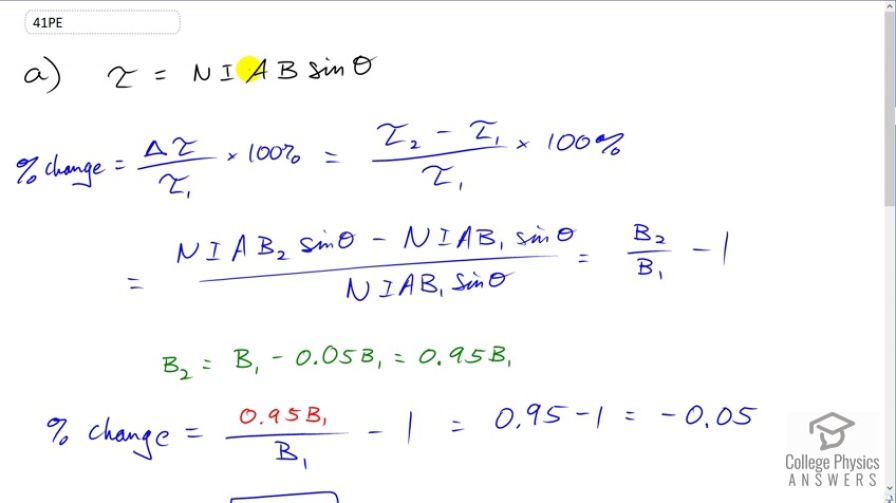 41PE
a) τ = NIAB sinθ
% change = Δτ/τ₁ × 100% = (τ₂ − τ₁)/τ₁ × 100%
= (NIAB₂ sinθ − NIAB₁ sinθ)/(NIAB₁ sinθ) = B₂/B₁ − 1
B₂ = B₁ − 0.05B₁ = 0.95B₁
% change = 0.95B₁/B₁ − 1 = 0.95 − 1 = −0.05
College Physics
ANSWERS